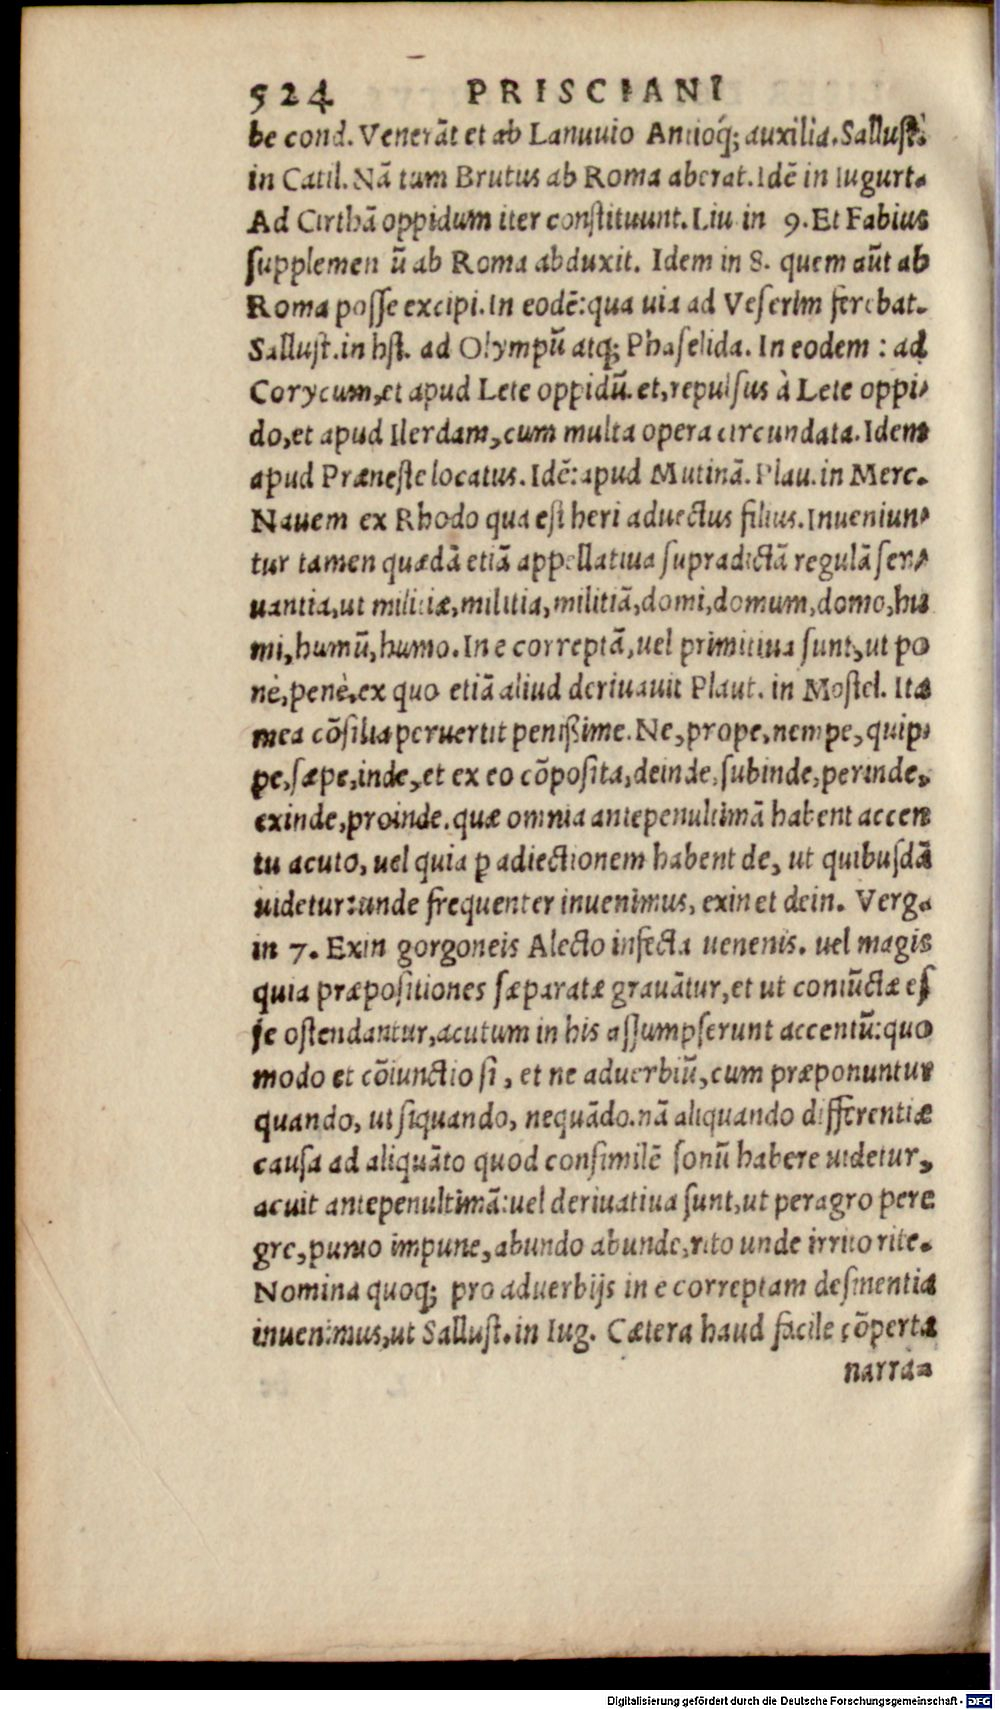 524 PRISCIANI
be cond. Venerāt et ab Lanuuio Antioq́; auxilia. Sallusti
in Catil. Nā tum Brutus ab Roma aberat. Idē in Iugurt.
Ad Cirthā oppidum iter constituunt. Liu in 9. Et Fabius
supplemen ū ab Roma abduxit. Idem in 8. quem aūt ab
Roma posse excipi. In eodē: qua uia ad Veserim ferebat.
Sallust. in hst. ad Olympū atq; Phaselida. In eodem : ad
Corycum, et apud Lete oppidū. et, repulsus à Lete oppi-
do, et apud Ilerdam, cum multa opera circundata. Idem
apud Præneste locatus. Idē: apud Mutinā. Plau. in Merc.
Nauem ex Rhodo qua est heri aduectus filius. Inueniun-
tur tamen quædā etiā appellatiua supradictā regulā ser-
uantia, ut militiæ, militia, militiā, domi, domum, domo, hu
mi, humū, humo. In e correptā, uel primitiua sunt, ut po
nè, penè, ex quo etiā aliud deriuauit Plaut. in Mostel. Ita
mea cōsilia peruertit penißime. Ne, prope, nempe, quip-
pe, sæpe, inde, et ex eo cōposita, deinde, subinde, perinde,
exinde, proinde. quæ omnia antepenultimā habent accen
tu acuto, uel quia ꝑ adiectionem habent de, ut quibusdā
uidetur: unde frequenter inuenimus, exin et dein. Verg.
in 7. Exin gorgoneis Alecto infecta uenenis. uel magis
quia præpositiones sæparatæ grauātur, et ut coniūctæ es
se ostendantur, acutum in his assumpserunt accentū: quo
modo et cōiunctio si, et ne aduerbiū, cum præponuntur
quando, ut siquando, nequādo. nā aliquando differentiæ
causa ad aliquāto quod consimilē sonū habere uidetur,
acuit antepenultimā: uel deriuatiua sunt, ut peragro pere
gre, punio impune, abundo abunde, rito unde irrito rite.
Nomina quoq; pro aduerbijs in e correptam desinentia
inuenimus, ut Sallust. in Iug. Cætera haud facile cōperta
narra-
Digitalisierung gefördert durch die Deutsche Forschungsgemeinschaft - DFG